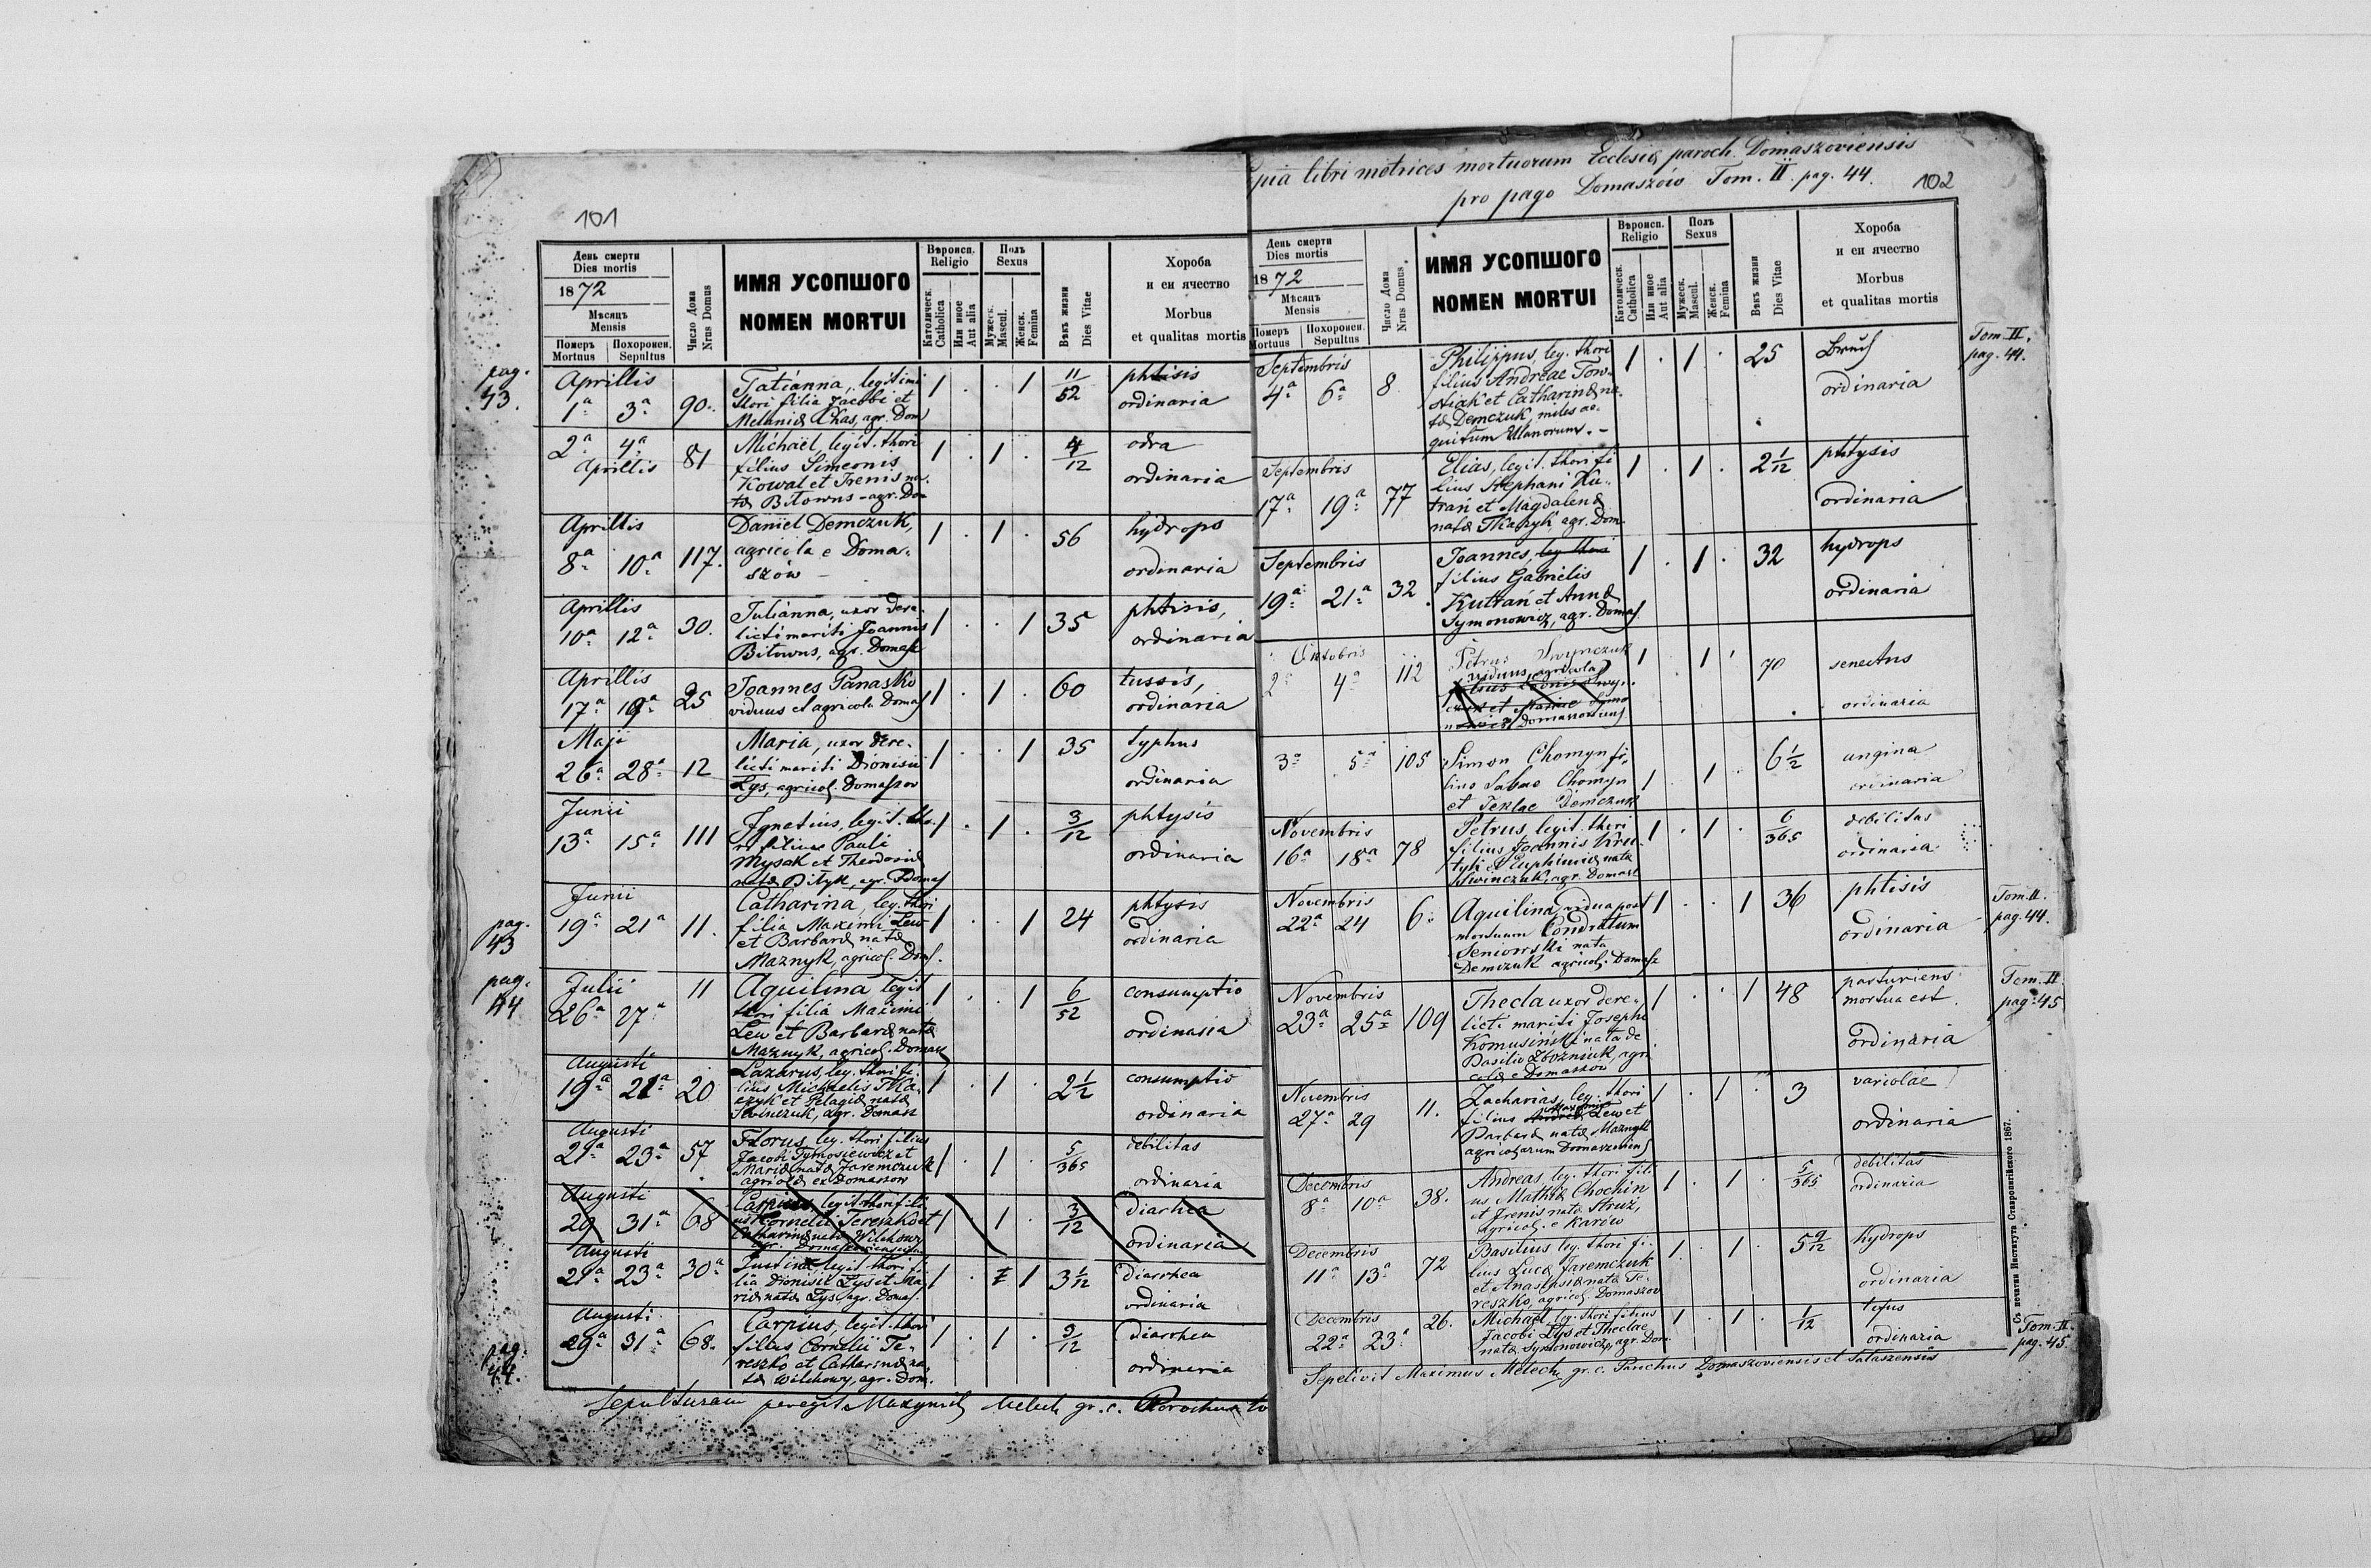 101
День смерти
Dies mortis
1872
Мѣсяць
Mensis
Померъ Похоронен.
Mortuus Sepultus
Число Дома
Nrus Domus
ИМЯ УСОПШОГО
NOMEN MORTUI
Вѣроисп.
Religio
Католическ.
Catholica
Или иное
Aut alia
Полъ
Sexus
Мужеск.
Mascul.
Женск.
Femina
Вѣкъ жизни
Dies Vitae
Хороба
и еи ячество
Morbus
et qualitas mortis
pag.
43.
Aprillis
1a 3a 90.
Tatianna, legitimi
thori filia Jacobi et
Melaniæ Chas, agr. Dom
1 . . 1 11/52
phtisis
ordinaria
2a 4a
Aprillis
81
Michaël legit. thori
filius Simeonis
Kowal et Irenis na-
tæ Bitowns - agr. Do
1 . 1 . 4/12
odra
ordinaria
Aprillis
8a 10a 117.
Daniel Demczuk,
agricola e Doma-
szów -
1 . 1 . 56
hydrops
ordinaria
Aprillis
10a 12a 30.
Julianna, uxor dere-
licti mariti Joannis
Bitowns, agr. Domasz
1 . . 1 35
phtisis,
ordinaria
Aprillis
17a 19a 25
Joannes Panasko
viduus et agricola Domas
1 . 1 . 60
tussis,
ordinaria
Maji
26a 28a 12
Maria, uxor dere-
licti mariti Dionisii
Lys, agricol. Domaszov
1 . . 1 35
typhus
ordinaria
Junii
13a 15a 111
Ignatius, legit. tho-
ri filius Pauli
Mysak et Theodoriæ
natæ Bityk, agr. Domas
1 . 1 . 3/12
phtysis
ordinaria
pag.
43
Junii
19a 21a 11.
Catharina, leg. thori
filia Maximi Lew
et Barbaræ natæ
Maznyk, agricol. Dom.
1 . . 1 24
phtysis
ordinaria
pag.
44
Julii
26a 27a 11
Aquilina legit
thori filia Maximi
Lew et Barbaræ natæ
Maznyk, agricol. Domasz
1 . . 1 6/52
consumptio
ordinaria
Augusti
19a 21a 20
Lazarus, leg. thori fi-
lius Michaelis
et Pelagiæ natæ
Iwinczuk, agr. Domasz
1 . 1 . 2 1/2
consumptio
ordinaria
Augusti
21a 23a 57
Florus, leg. thori filius
Jacobi Tymosiewicz et
Mariæ natæ Jaremczuk
agricolæ ex Domaszow
1 . 1 . 5/365
debilitas
ordinaria
Augusti
29 31a 68
Carpius legit thori fili
us Cornelii Tereszko et
Catharinæ natæ Wilchowy
agr. Domaszoviensium
1 1 . 3/12
Diarhea
ordinaria
Augusti
21a 23a 30a
Justina, legit thori fi-
lia Dionisii Lys et Ma-
riæ natæ Lys, agr. Domas.
1 . 1 3 1/12
diarrhea
ordinaria
pag.
44.
Augusti
29a 31a 68.
Carpius, legit. thori
filius Cornelii Te-
reszko et Catharinæ na-
tæ Wilchowy, agr. Dom.
1 . 1 . 3/12
diarrhea
ordinaria
Sepulturam peregit Maxymus Melech gr. c. Parochus
libri metrices mortuorum Ecclesiæ paroch. Domaszoviensis
pro pago Domaszów Tom. II. pag. 44. 102
День смерти
Dies mortis
1872
Мѣсяць
Mensis
Померъ Похоронен.
Mortuus Sepultus
Число Дома
Nrus Domus
ИМЯ УСОПШОГО
NOMEN MORTUI
Вѣроисп.
Religio
Католическ.
Catholica
Или иное
Aut alia
Полъ
Sexus
Мужеск.
Mascul.
Женск.
Femina
Вѣкъ жизни
Dies Vitae
Хороба
и еи ячество
Morbus
et qualitas mortis
Tom. II.
pag. 44.
Septembris
4a 6a 8
Philippus, leg. thori
filius Andreae Tow-
et Catharinæ na-
tæ Demczuk, miles ae-
quitum Ulanorum. -
1 . 1 . 25
ordinaria
Septembris
17a 19a 77
Elias, legit. thori fi
lius Stephani Ku-
trań et Magdalenæ
natæ Tkaczyk, agr. Dom.
1 . 1 . 2 1/12
phtysis
ordinaria
Septembris
19a 21a 32
Joannes, leg thori
filius Gabrielis
Kutrań et Annæ
Symonowicz, agr. Domas
1 . 1 . 32
hydrops
ordinaria
Oktobris
2a 4a 112
Petrus Iwynczuk
viduus, agricola
Domaszoviens
1 1 70
senectus
ordinaria
3a 5a 105
Simon Chomyn fi-
lius Sabae Chomyn
et Teklae Demczuk
1 1 6 1/2
angina
ordinaria
Novembris
16a 18a 78
Petrus, legit. thori
filius Joannis Kru-
et Euphimiæ natæ
Iwinczuk, agr. Domasz
1 . 1 . 6/365
debilitas
ordinaria
Novembris
22a 24 6.
Aquilina, vidua post
mortuum Condratum
Seniowski nata
Demczuk agricol. Domasz
1 . . 1 36
phtisis
ordinaria
Tom. II.
pag. 44.
Novembris
23a 25a 109
Thecla uxor dere-
licti mariti Josephi
Komusiński nata de
Basilio agri
colæ e Domaszow
1 . . 1 48
parturiens
mortua est.
ordinaria
Tom. II
pag. 45
Novembris
27a 29 11.
Zacharias, leg. thori
filius Maximi Lew et
Barbaræ natæ Maznyk
agricolarum Domaszoviens
1 . 1 . 3
variolae
ordinaria
Decembris
8a 10a 38.
Andreas, leg. thori fili
us Mathiæ Chochin
et Irenis natæ Struż,
agricol. e Karów
1 . 1 . 5/365
debilitas
ordinaria
Decembris
11a 13a 72
Basilius leg. thori fi-
lius Lucæ Jaremczuk
et Anastasiæ natæ Te-
reszko, agricol. Domaszov
1. . 1 . 5 9/12
hydrops
ordinaria
Decembris
22a 23a 26.
Michaël, leg. thori filius
Jacobi Lys et Theclae
natæ Symonowicz, agr. Dom.
1 . 1 . 1/12
tifus
ordinaria
Tom. II.
pag. 45.
Sepelivit Maximus Melech, gr. c. Parochus Domaszoviensis et Salaszensis
Съ печатни Института Ставропигійского 1867.